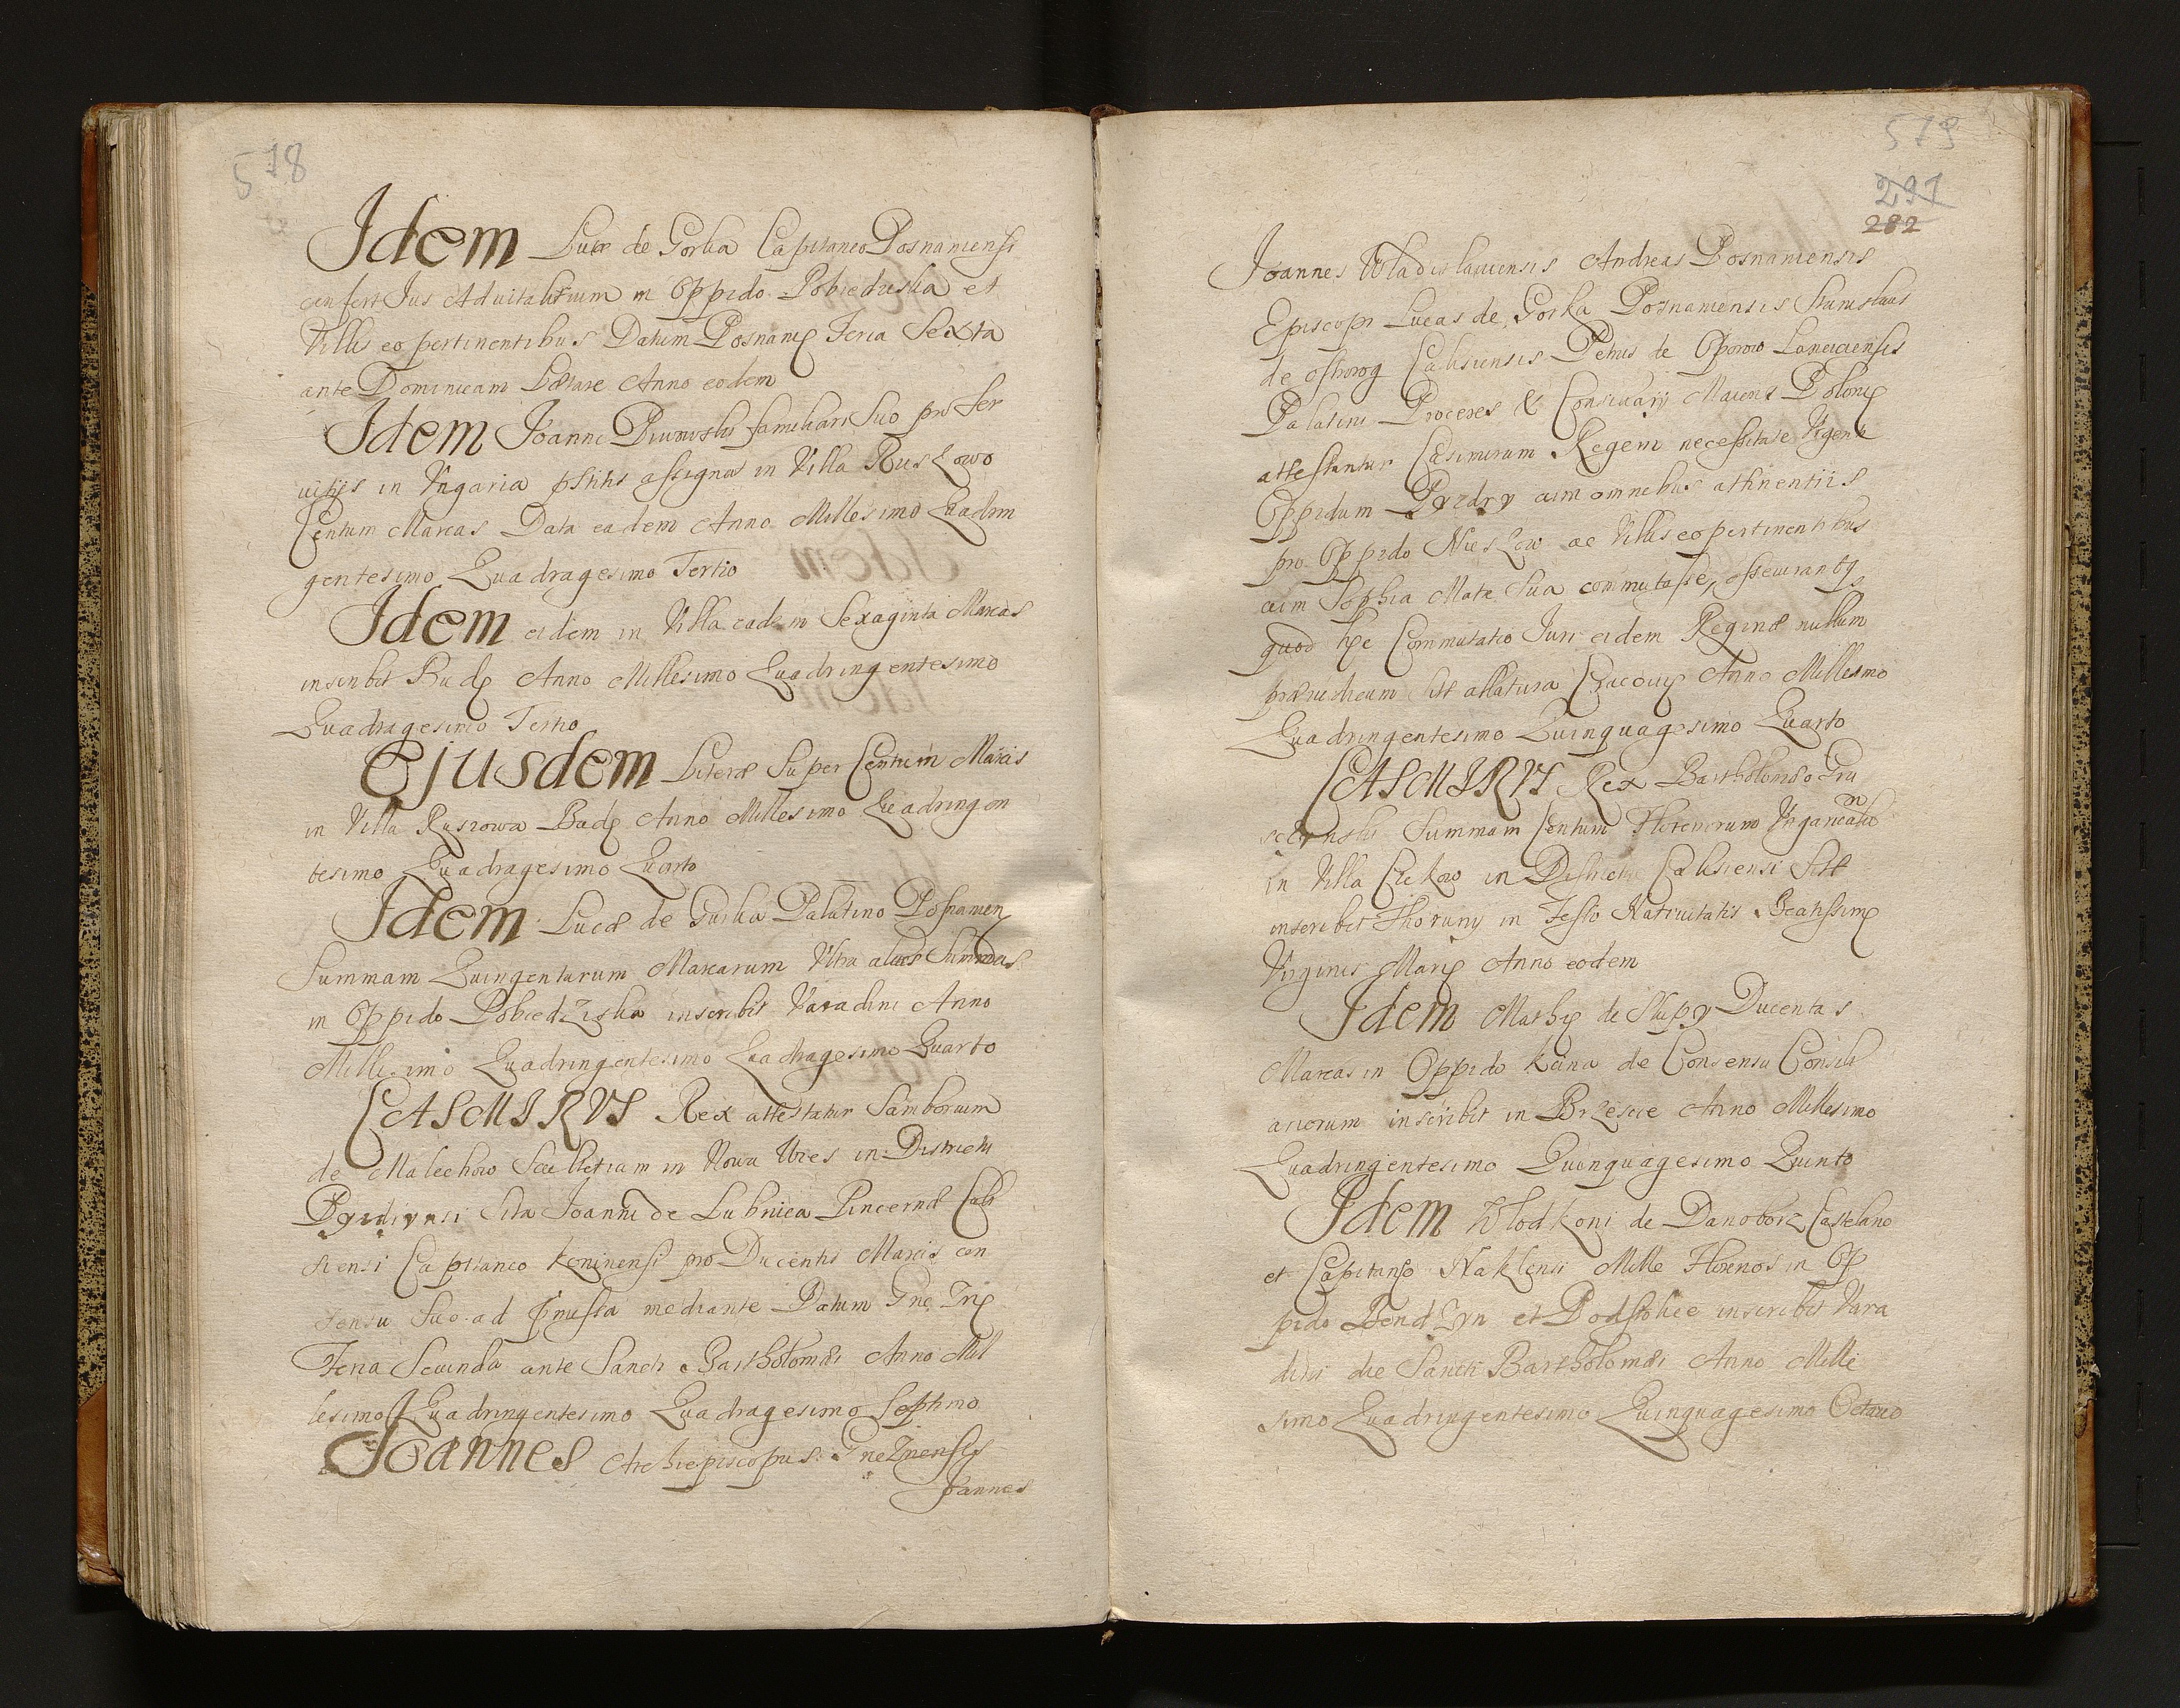 578
Idem Lucæ de Gorka Capitaneo Posnaniensi
confert Ius Advitalitium in Oppido Pobiedziska et
Villis eo pertinentibus Datum Posnanię Feria Sexta
ante Dominicam Lætare Anno eodem
Idem Joanni familiari Suo pro Ser
vitijs in Vngaria pstitis assignat in Villa Ruszkowo
Centum Marcas Data eadem Anno Millesimo Quadrin
gentesimo Quadragesimo Tertio
Idem eidem in Villa eadem Sexaginta Marcas
inscribit Budę Anno Millesimo Quadringentesimo
Quadragesimo Tertio
Ejusdem Literæ Super Centum Marcis
in Villa Rusrowa Budę Anno Millesimo Quadringen
tesimo Quadragesimo Quarto
Idem Lucæ de Gurka Palatino Posnanien
Summam Quingentarum Marcarum Vltra alias Summas
in Oppido Pobiedziska inscribit Varadini Anno
Millesimo Quadringentesimo Quadragesimo Quarto
CASIMIRVS Rex attestatur Samborium
de Malechowo Scultetiam in Nowa Wies in Districtu
Pyzdrensi Sita Joanni de Lubnica Pincernæ Cali
siensi Capitaneo Koninensi pro Ducentis Marcis con
sensu Suo ad pmissa mediante Datum Gne Znę
Feria Secunda ante Sancti Bartholomæi Anno Mil
lesimo Quadringentesimo Quadragesimo Septimo
Joannes Archiepiscopus Gneznensis
Joannes
579
291
282
Joannes Wladislauiensis Andreas Posnaniensis
Episcopi Lucas de Gorka Posnaniensis Stanislaus
de Ostrorog Calisiensis Petrus de Oporow Lanciciensis
Palatini Proceres & Consiliarij Maioris Polonię
attestantur Casimirum Regem necessitate Vrgente
Oppidum Pyzdry cum omnibus attinentiis
pro Oppido Nieszow ac Villis eo pertinentibus
cum Sophia Matre Sua commutasse, assecurantq
quod hęc Commutatio Iuri eidem Reginæ nullum
præiudicium sit allatura Cracouię Anno Millesimo
Quadringentesimo Quinquagesimo Quarto
CASIMIRVS Rex Bartholomæo Gru
Summam Centum Florenorum Vngaricaliu
m
in Villa in Districtu Calisiensi Sitæ
inscribit Thorunij in Festo Natiuitatis Beatissimę
Virginis Marię Anno eodem
Idem Mathię de Slupy Ducentas
Marcas in Oppido Kcina de Consensu Consili
ariorum inscribit in Brzescie Anno Millesimo
Quadringentesimo Quinquagesimo Quinto
Idem Wlodkoni de Danoborz Castelano
et Capitanęo Naklensi Mille Florenos in Op
pido Bendzyn et Podstolice inscribit Vara
dini die Sancti Bartholomæi Anno Mille
simo Quadringentesimo Quinquagesimo Octauo